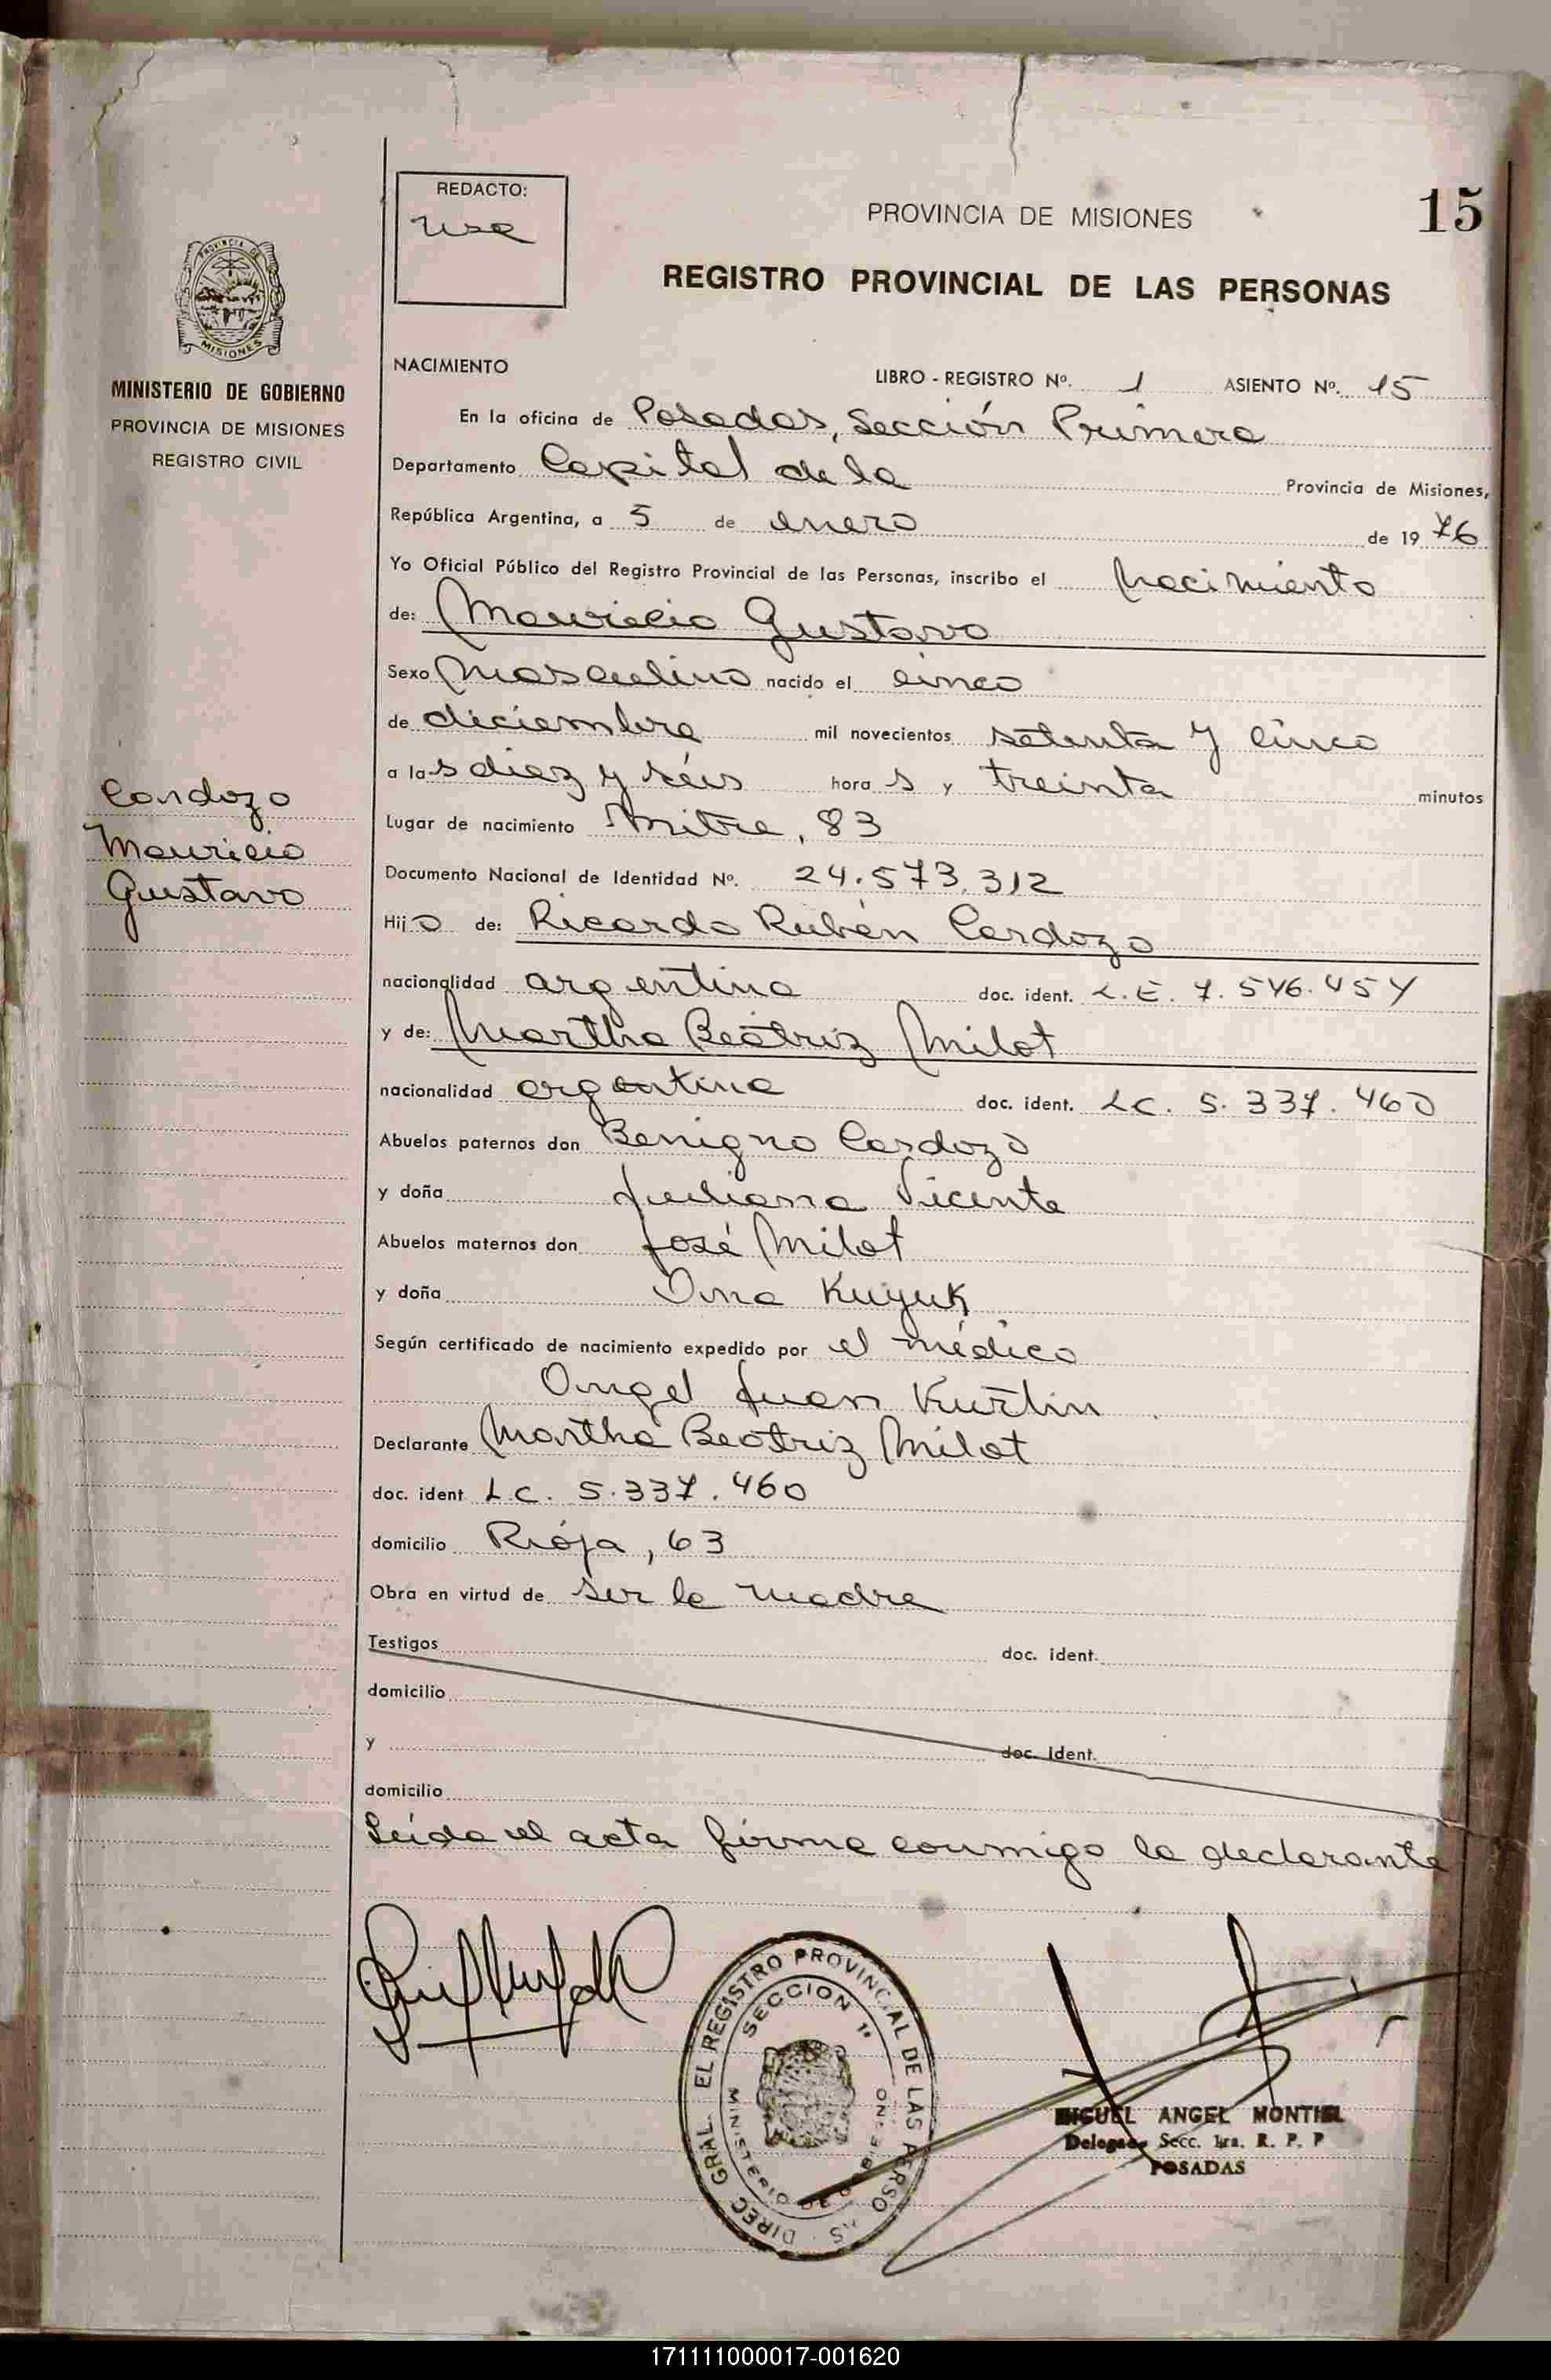 REDACTO:
PROVINCIA DE MISIONES
15
REGISTRO PROVINCIAL DE LAS PERSONAS
PROVINCIA DE
MISIONES
MINISTERIO DE GOBIERNO
PROVINCIA DE MISIONES
REGISTRO CIVIL
NACIMIENTO
LIBRO - REGISTRO Nº. 1 ASIENTO Nº. 15
En la oficina de Posadas, Sección Primera
Departamento Capital de la Provincia de Misiones,
República Argentina, a 5 de enero de 1976
Yo Oficial Público del Registro Provincial de las Personas, inscribo el Nacimiento
de: Mauricio Gustavo
Sexo Masculino nacido el cinco
de diciembre mil novecientos setenta y cinco
a las diez y séis horas y treinta minutos
Lugar de nacimiento Mitre, 83
Documento Nacional de Identidad Nº. 24.573.312
Hijo de: Ricardo Rubén Cardozo
nacionalidad argentina doc. ident. L.E. 7.546.454
y de: Martha Beatriz Milot
nacionalidad argentina doc. ident. LC. 5.337.460
Abuelos paternos don Benigno Cardozo
y doña Juliana Vicente
Abuelos maternos don José Milot
y doña Ana Kuyuk
Según certificado de nacimiento expedido por el médico
Angel Juan Kurtin
Declarante Martha Beatriz Milot
doc. ident L.C. 5.337.460
domicilio Rioja, 63
Obra en virtud de ser la madre
Testigos doc. ident.
domicilio
y doc. ident.
domicilio
Leída el acta firma conmigo la declarante
Cardozo
Mauricio
Gustavo
DIREC GRAL. EL REGISTRO PROVINCIAL DE LAS PERSO AS
SECCION 1ª
MINISTERIO DE GOBIERNO
MIGUEL ANGEL MONTIEL
Delegado Secc. 1ra. R. P. P
POSADAS
171111000017-001620